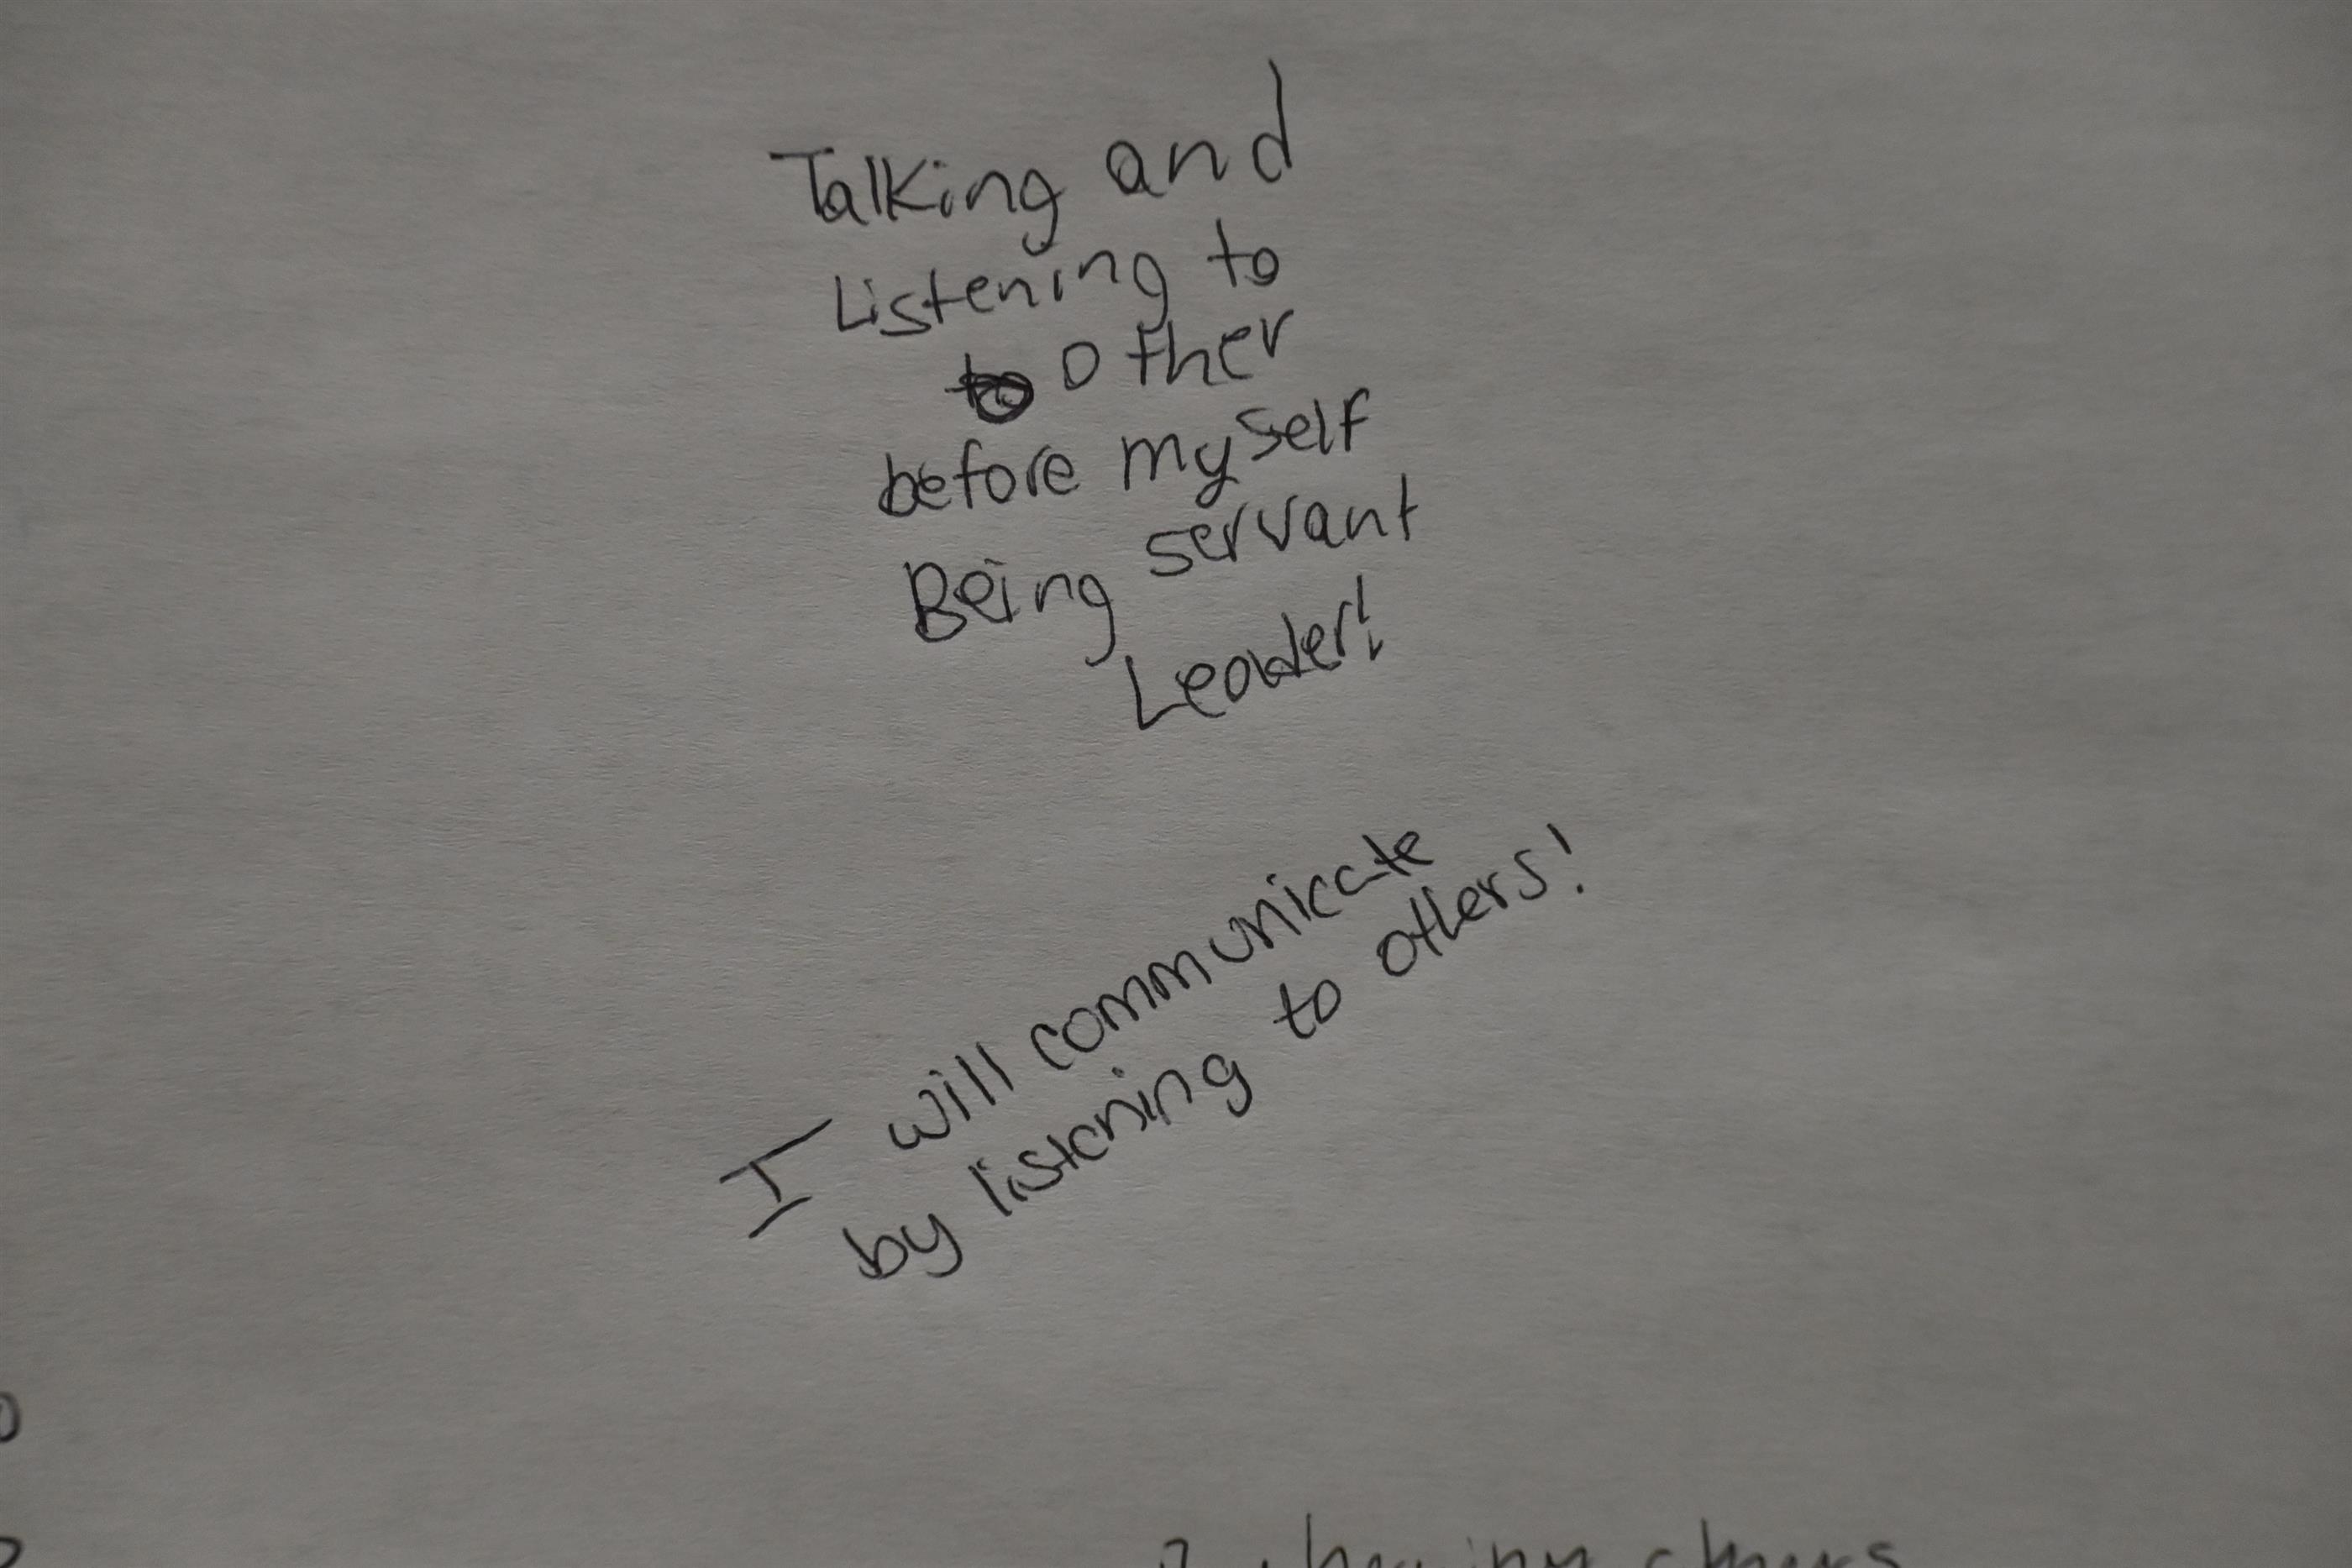 Talking and
Listening to
to other
before myself
Being servant
Leader!
I will communicate
by listening to others!